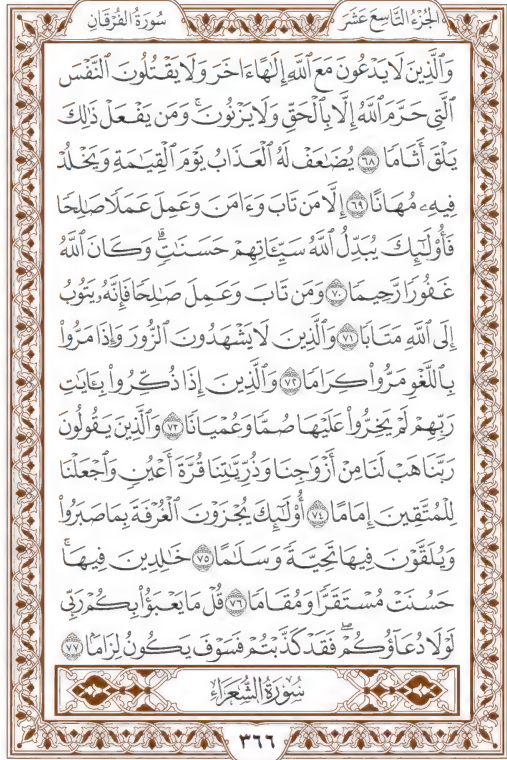 الجُزْءُ التَّاسِعَ عَشَرَ سُورَةُ الفُرْقَانِ
وَٱلَّذِينَ لَا يَدْعُونَ مَعَ ٱللَّهِ إِلَٰهًا ءَاخَرَ وَلَا يَقْتُلُونَ ٱلنَّفْسَ
ٱلَّتِي حَرَّمَ ٱللَّهُ إِلَّا بِٱلْحَقِّ وَلَا يَزْنُونَۚ وَمَن يَفْعَلْ ذَٰلِكَ
يَلْقَ أَثَامًا ٦٨ يُضَٰعَفْ لَهُ ٱلْعَذَابُ يَوْمَ ٱلْقِيَٰمَةِ وَيَخْلُدْ
فِيهِۦ مُهَانًا ٦٩ إِلَّا مَن تَابَ وَءَامَنَ وَعَمِلَ عَمَلًا صَٰلِحًا
فَأُو۟لَٰٓئِكَ يُبَدِّلُ ٱللَّهُ سَيِّـَٔاتِهِمْ حَسَنَٰتٍۗ وَكَانَ ٱللَّهُ
غَفُورًا رَّحِيمًا ٧٠ وَمَن تَابَ وَعَمِلَ صَٰلِحًا فَإِنَّهُۥ يَتُوبُ
إِلَى ٱللَّهِ مَتَابًا ٧١ وَٱلَّذِينَ لَا يَشْهَدُونَ ٱلزُّورَ وَإِذَا مَرُّوا۟
بِٱللَّغْوِ مَرُّوا۟ كِرَامًا ٧٢ وَٱلَّذِينَ إِذَا ذُكِّرُوا۟ بِـَٔايَٰتِ
رَبِّهِمْ لَمْ يَخِرُّوا۟ عَلَيْهَا صُمًّا وَعُمْيَانًا ٧٣ وَٱلَّذِينَ يَقُولُونَ
رَبَّنَا هَبْ لَنَا مِنْ أَزْوَٰجِنَا وَذُرِّيَّٰتِنَا قُرَّةَ أَعْيُنٍ وَٱجْعَلْنَا
لِلْمُتَّقِينَ إِمَامًا ٧٤ أُو۟لَٰٓئِكَ يُجْزَوْنَ ٱلْغُرْفَةَ بِمَا صَبَرُوا۟
وَيُلَقَّوْنَ فِيهَا تَحِيَّةً وَسَلَٰمًا ٧٥ خَٰلِدِينَ فِيهَاۚ
حَسُنَتْ مُسْتَقَرًّا وَمُقَامًا ٧٦ قُلْ مَا يَعْبَؤُا۟ بِكُمْ رَبِّي
لَوْلَا دُعَآؤُكُمْۖ فَقَدْ كَذَّبْتُمْ فَسَوْفَ يَكُونُ لِزَامًۢا ٧٧
سُورَةُ الشُّعَرَاءِ
٣٦٦